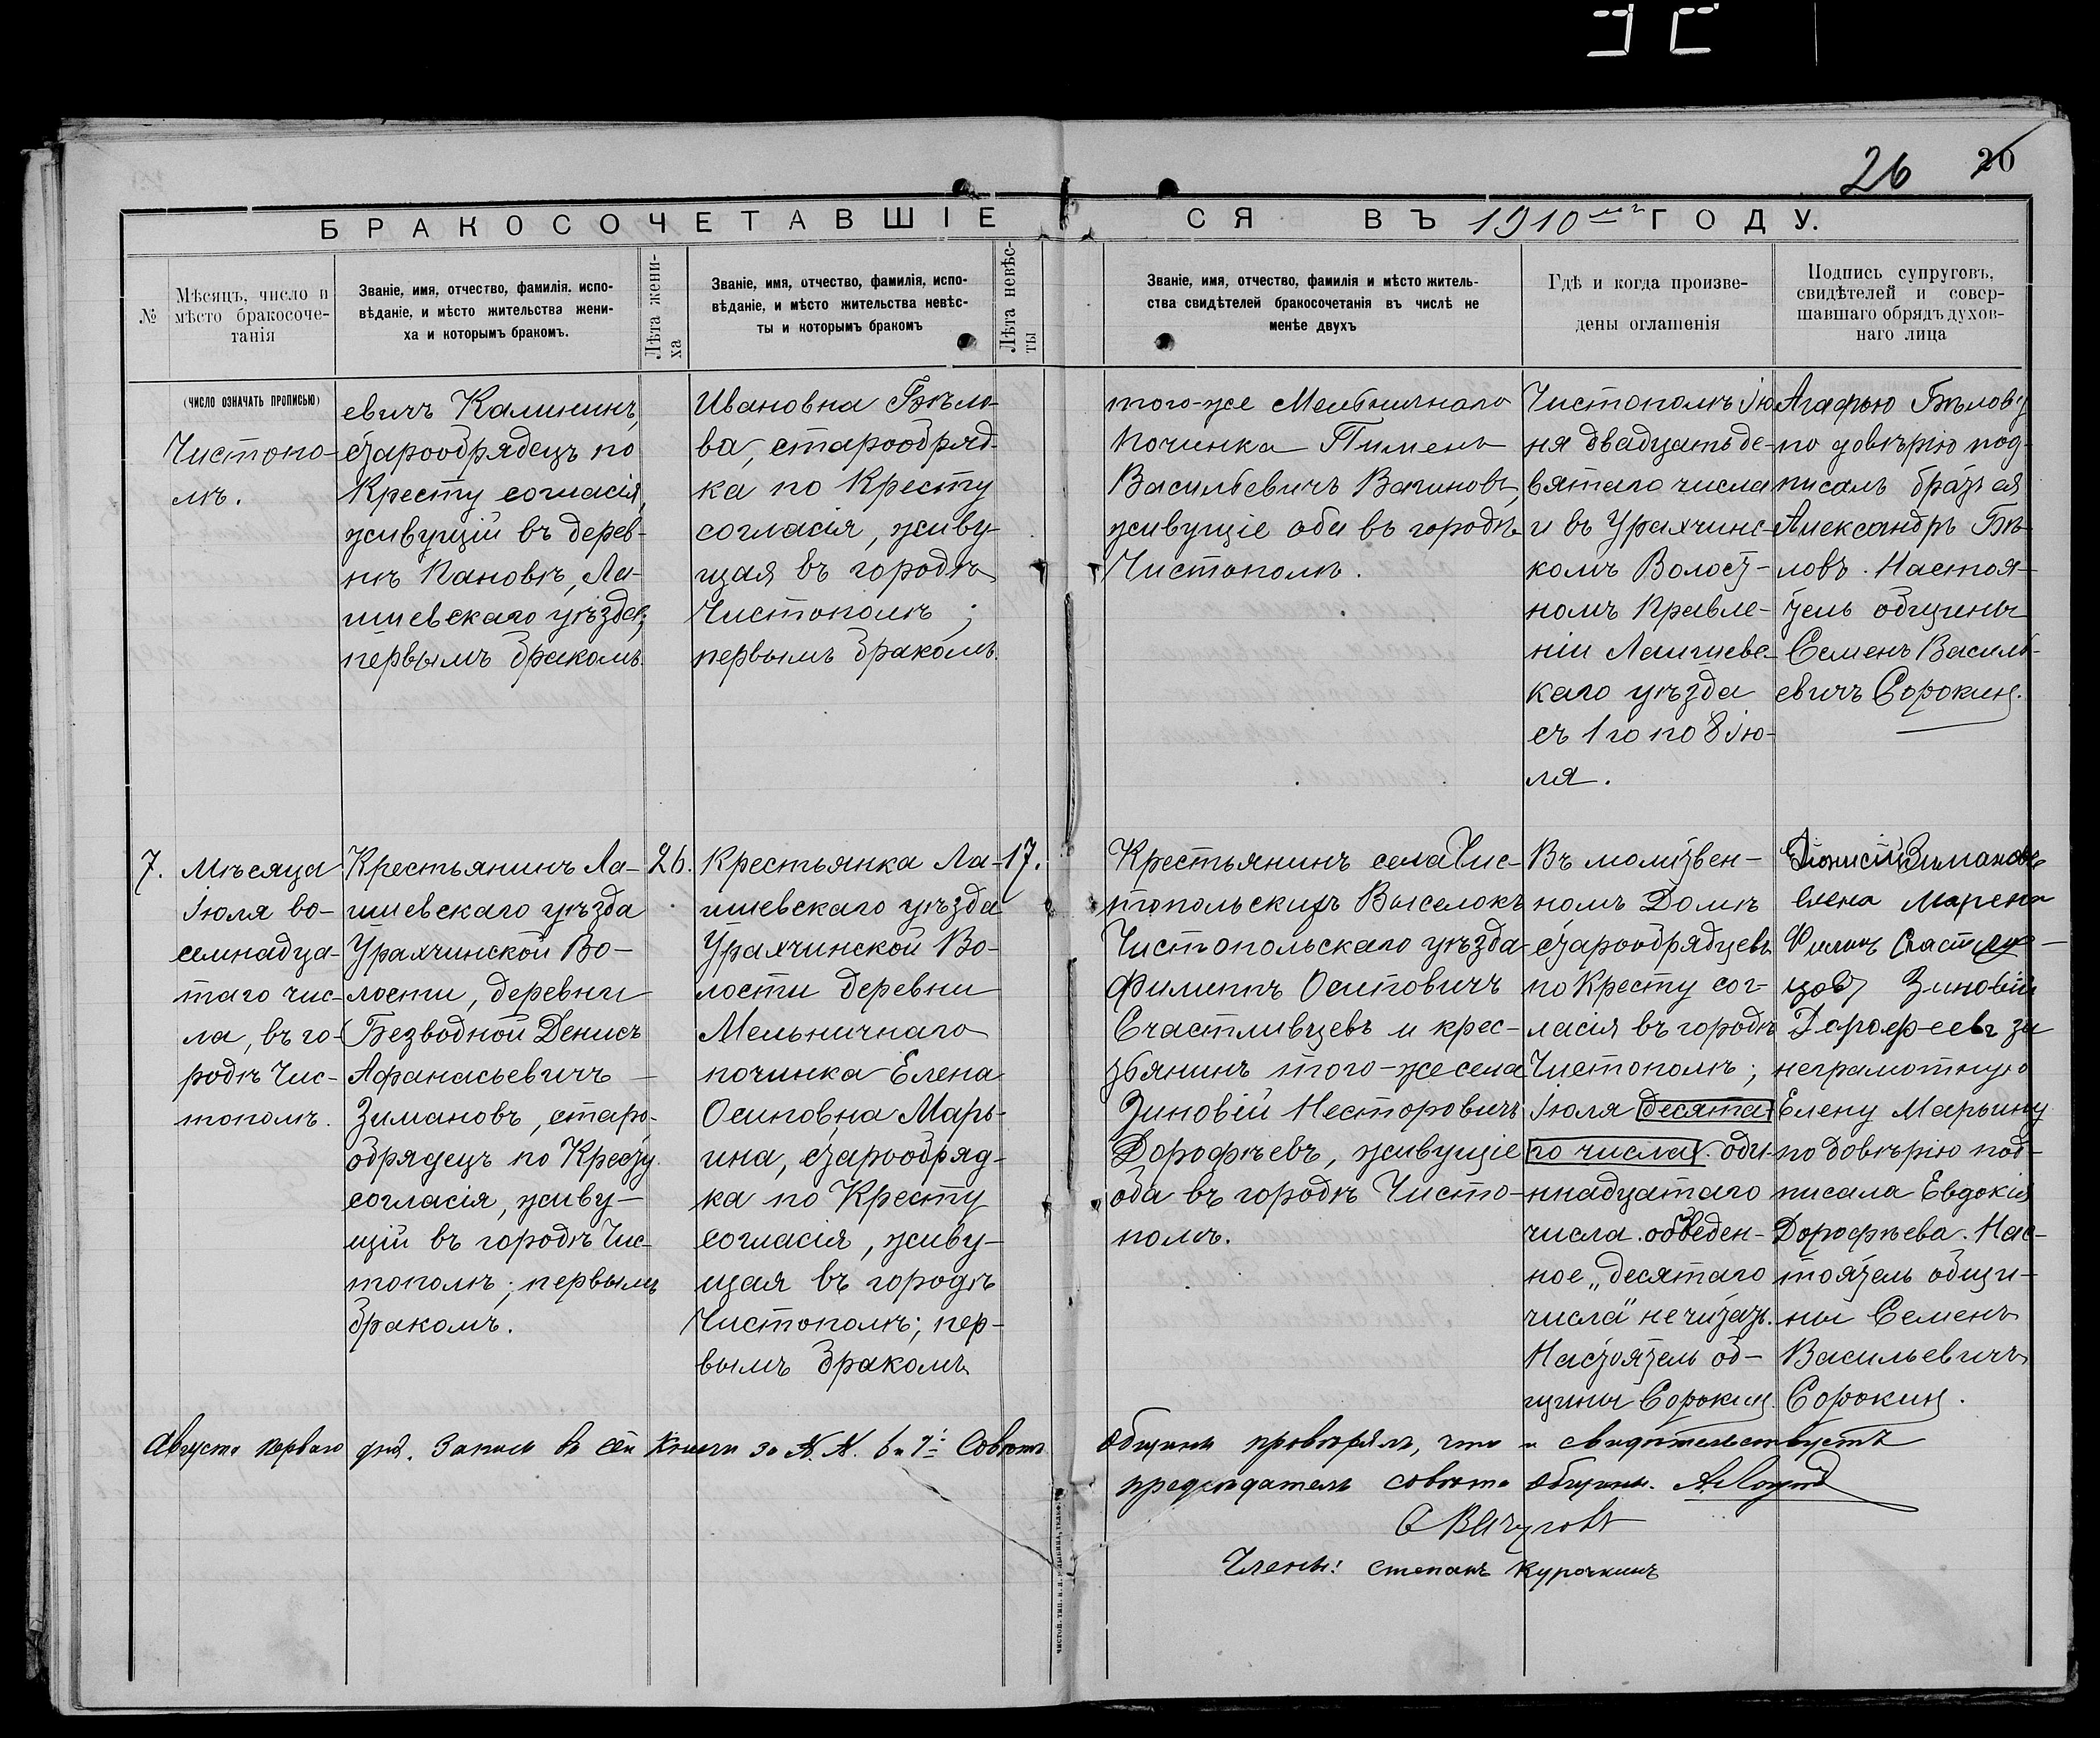 26 20
БРАКОСОЧЕТАВШІЕСЯ ВЪ 1910 мъ ГОДУ.
№
Мѣсяцъ, число и
мѣсто бракосоче-
танія
Званіе, имя, отчество, фамилія, испо-
вѣданіе, и мѣсто жительства жени-
ха и которымъ бракомъ.
Лѣта жени-
ха
Званіе, имя, отчество, фамилія, испо-
вѣданіе, и мѣсто жительства невѣс-
ты и которымъ бракомъ
Лѣта невѣс-
ты
Званіе, имя, отчество, фамилія и мѣсто житель-
ства свидѣтелей бракосочетанія въ числѣ не
менѣе двухъ
Гдѣ и когда произве-
дены оглашенія
Подпись супруговъ,
свидѣтелей и совер-
шавшаго обрядъ духов-
наго лица
(ЧИСЛО ОЗНАЧАТЬ ПРОПИСЬЮ)
Чистопо-
лѣ.
евичъ Калининъ,
старообрядецъ по
Кресту согласія,
живущій въ дерев-
нѣ Пановкѣ, Ла-
ишевскаго уѣзда;
первымъ бракомъ.
Ивановна Бѣло-
ва, старообряд-
ка по Кресту
согласія, живу-
щая въ городѣ
Чистополѣ;
первымъ бракомъ.
того-же Мельничнаго
Починка Пименъ
Васильевичъ Вагиновъ,
живущіе оба въ городѣ
Чистополѣ.
Чистополѣ Ію-
ня двадцать де-
вятаго числа
и въ Урахчинс-
комъ Волост-
номъ Правле-
ніи Лаишевс-
каго уѣзда
съ 1го по 8 Ію-
ля.
Агафью Бѣлову
по довѣрію под-
писалъ братъ ея
Александръ Бѣ-
ловъ. Настоя-
тель общины
Семенъ Василь-
евичъ Сорокинъ.
7.
Мѣсяца
Іюля во-
семнадца-
таго чис-
ла, въ го-
родѣ Чис-
тополѣ.
Крестьянинъ Ла-
ишевскаго уѣзда
Урахчинской Во-
лости, деревни
Безводной Денисъ
Афанасьевичъ
Зимановъ, старо-
обрядецъ по Кресту
согласія, живу-
щій въ городѣ Чис-
тополѣ; первымъ
бракомъ.
26.
Крестьянка Ла-
ишевскаго уѣзда
Урахчинской Во-
лости деревни
Мельничнаго
починка Елена
Осиповна Марь-
ина, старообряд-
ка по Кресту
согласія, живу-
щая въ городѣ
Чистополѣ; пер-
вымъ бракомъ
17.
Крестьянинъ села Чис-
топольскихъ Выселокъ
Чистопольскаго уѣзда
Филиппъ Осиповичъ
Счастливцевъ и крес-
тьянинъ того-же села
Зиновій Несторовичъ
Дорофѣевъ, живущіе
оба въ городѣ Чисто-
полѣ.
Въ молитвен-
номъ Домѣ
старообрядцевъ
по Кресту сог-
ласія въ городѣ
Чистополѣ;
Іюля десята-
го числа. оди-
ннадцатаго
числа. обведен-
ное „десятаго
числа" не читать.
Настоятель об-
щины Сорокинъ.
Діонисій Зимановъ
Елена Марена
Филипъ Счастли-
цовъ Зиновій
Дорофеевъ за
неграмотную
Елену Марьину
по довѣрію под-
писала Евдокія
Дорофѣева. Нас-
тоятель общи-
ны Семенъ
Васильевичъ
Сорокинъ.
Августа перваго дня. Записи въ сей Книги за №.№. 6 и 7й Совѣтъ Общины провѣрялъ, что и свидѣтельствуетъ
предсѣдатель совѣта Общины.
Члены: Степанъ Курочкинъ